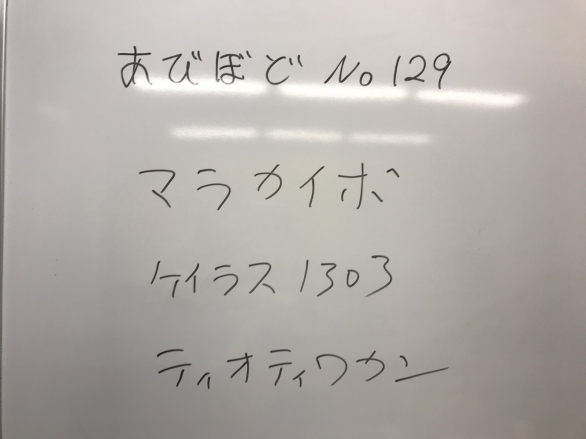 あびぼど No 129
マラカイボ
ケイラス1303
ティオティワカン